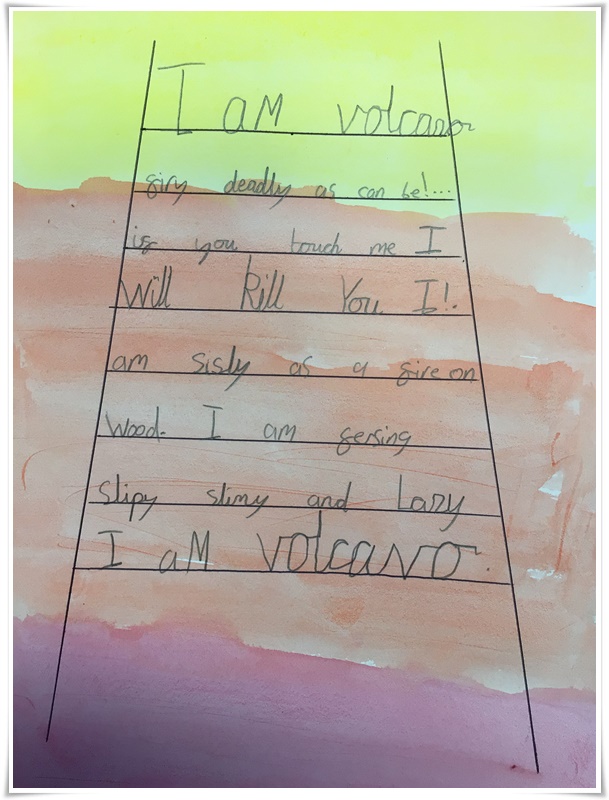 I aM volcano
firy deadly as can be!...
if you touch me I
Will kill You I!.
am sisly as a fire on
wood. I am fersing
slipy slimy and Lazy
I aM volcano.